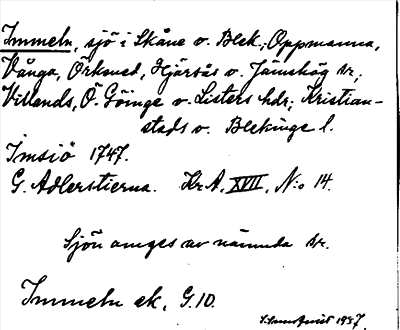 Immeln, sjö i Skåne o. Blek.; Oppmanna,
Vånga, Örkened, Hjärsås o. Jämshög sr;
Villands, Ö. Göinge o. Listers hdr; Kristian-
stads o. Blekinge l.
Imsiö 1747.
G. Adlerstierna. KrA, XVII, N:o 14.
Sjön anges av nämnda sr.
Immeln ek, G.10.
1957.